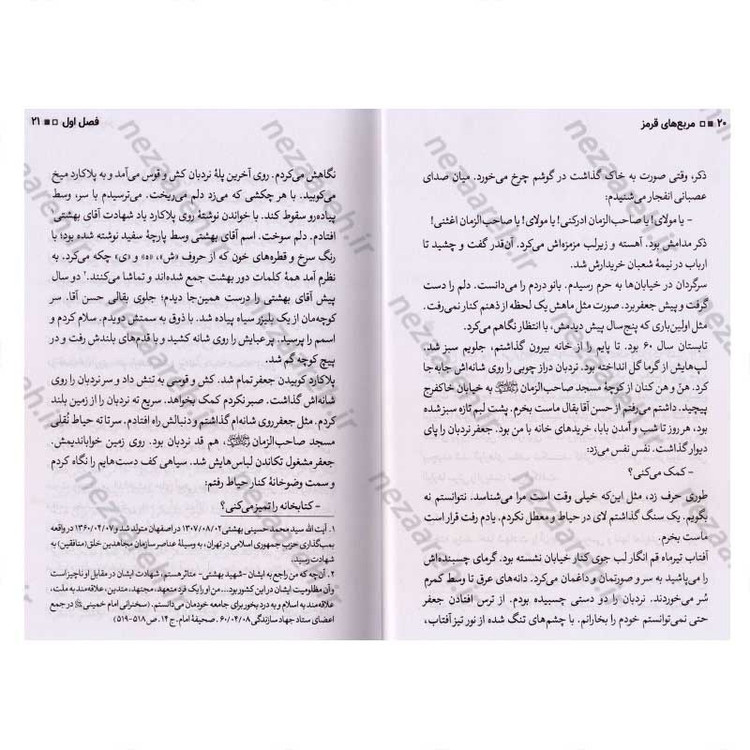 ۲۰ ■ □ مربع‌های قرمز
ذکر، وقتی صورت به خاک گذاشت در گوشم چرخ می‌خورد. میان صدای
عصبانی انفجار می‌شنیدم:
- یا مولای! یا صاحب‌الزمان ادرکنی! یا مولای! یا صاحب‌الزمان اغثنی!
ذکر مدامش بود. آهسته و زیرلب مزمزه‌اش می‌کرد. آن‌قدر گفت و چشید تا
ارباب در نیمهٔ شعبان خریدارش شد.
سرگردان در خیابان‌ها به حرم رسیدم. بانو دردم را می‌دانست. دلم را دست
گرفت و پیش جعفر برد. صورت مثل ماهش یک لحظه از ذهنم کنار نمی‌رفت.
مثل اولین‌باری که پنج‌سال پیش دیدمش، با انتظار نگاهم می‌کرد.
تابستان سال ۶۰ بود. تا پایم را از خانه بیرون گذاشتم، جلویم سبز شد.
لپ‌هایش از گرما گل انداخته بود. نردبان دراز چوبی را روی شانه‌اش جابه‌جا
کرد. هنّ و هن کنان از کوچهٔ مسجد صاحب‌الزمان به خیابان خاکفرج
پیچید. داشتم می‌رفتم از حسن آقا بقال ماست بخرم. پشت لبم تازه سبز شده
بود، هر روز تا شب و آمدن بابا، خریدهای خانه با من بود. جعفر نردبان را پای
دیوار گذاشت. نفس نفس می‌زد:
- کمک می‌کنی؟
طوری حرف زد، مثل این‌که خیلی وقت است مرا می‌شناسد. نتوانستم نه
بگویم. یک سنگ گذاشتم لای در حیاط و معطل نکردم. یادم رفت قرار است
ماست بخرم.
آفتاب تیرماه قم انگار لب جوی کنار خیابان نشسته بود. گرمای چسبنده‌اش
را می‌پاشید به سر و صورتمان و داغمان می‌کرد. دانه‌های عرق تا وسط کمرم
سُر می‌خوردند. نردبان را دو دستی چسبیده بودم. از ترس افتادن جعفر
حتی نمی‌توانستم خودم را بخارانم. با چشم‌های تنگ شده از نور تیز آفتاب،
فصل اول □ ■ ۲۱
نگاهش می‌کردم. روی آخرین پلهٔ نردبان کش و قوس می‌آمد و به پلاکارد میخ
می‌کوبید. با هر چکشی که می‌زد دلم می‌ریخت. می‌ترسیدم با سر، وسط
پیاده‌رو سقوط کند. با خواندن نوشتهٔ روی پلاکارد یاد شهادت آقای بهشتی۱
افتادم. دلم سوخت. اسم آقای بهشتی وسط پارچهٔ سفید نوشته شده بود؛ با
رنگ سرخ و قطره‌های خون که از حروف «ش»، «ه» و «ی» چکه می‌کرد. به
نظرم آمد همهٔ کلمات دور بهشت جمع شده‌اند و تماشا می‌کنند.۲ دو سال
پیش آقای بهشتی را درست همین‌جا دیدم؛ جلوی بقالی حسن آقا. سر
کوچه‌مان از یک بلیزر سیاه پیاده شد. با ذوق به سمتش دویدم. سلام کردم و
اسمم را پرسید. پر عبایش را روی شانه کشید و با قدم‌های بلندش رفت و در
پیچ کوچه گم شد.
پلاکارد کوبیدن جعفر تمام شد. کش و قوسی به تنش داد و سر نردبان را روی
شانه‌اش گذاشت. صبر نکردم کمک بخواهد. سریع ته نردبان را از زمین بلند
کردم. مثل جعفر روی شانه‌ام گذاشتم و دنبالش راه افتادم. سر تا ته حیاط نُقلی
مسجد صاحب‌الزمان، هم قد نردبان بود. روی زمین خواباندیمش.
جعفر مشغول تکاندن لباس‌هایش شد. سیاهی کف دست‌هایم را نگاه کردم
و سمت وضوخانهٔ کنار حیاط رفتم:
- کتابخانه را تمیز می‌کنی؟
۱. آیت الله سید محمد حسینی بهشتی ۱۳۰۷/۰۸/۰۲ در اصفهان متولد شد و ۱۳۶۰/۰۴/۰۷ در واقعه
بمب‌گذاری حزب جمهوری اسلامی در تهران، به وسیلهٔ عناصر سازمان مجاهدین خلق (منافقین) به
شهادت رسید.
۲. آن‌چه که من راجع به ایشان -شهید بهشتی- متاثر هستم، شهادت ایشان در مقابل او ناچیز است
و آن مظلومیت ایشان در این کشور بود...من او را یک فرد متعهد، مجتهد، متدین، علاقه‌مند به ملت،
علاقه‌مند به اسلام و به درد بخور برای جامعه خودمان می‌دانستم. (سخنرانی امام خمینی در جمع
اعضای ستاد جهاد سازندگی ۶۰/۰۴/۰۸. صحیفهٔ امام. ج ۱۴. ص ۵۱۸-۵۱۹)
nezaareh.ir